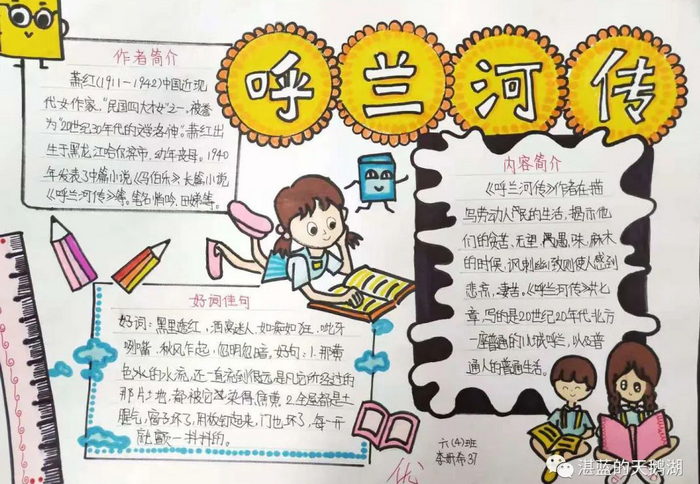 呼兰河传
作者简介
萧红(1911-1942)中国近现
代女作家,"民国四大才女"之一,被誉
为"20世纪30年代的文学洛神"。萧红出
生于黑龙江哈尔滨市,幼年丧母。1940
年发表了中篇小说《马伯乐》、长篇小说
《呼兰河传》等。笔名悄吟、田娣等。
内容简介
《呼兰河传》作者在描
写劳动人民的生活,揭示他
们的贫苦、无望、愚昧、麻木
的时候,讽刺幽默则使人感到
悲凉、凄苦。《呼兰河传》共七
章,写的是20世纪20年代北方
一座普通的小城呼兰,以及普
通人的普通生活。
好词佳句
好词:黑里透红,酒窝迷人,如痴如狂、呲牙
咧嘴、秋风乍起,忽明忽暗,好句:1.那黄
色水的水流,还一直流到很远,是凡它所经过的
那片土地,都被它染得焦黄。2.全屋都是土
腥气,窗子坏了,用板钉起来,门也坏了,每一开
就颤一抖抖的。
六(4)班
李妍希37
优
湛蓝的天鹅湖